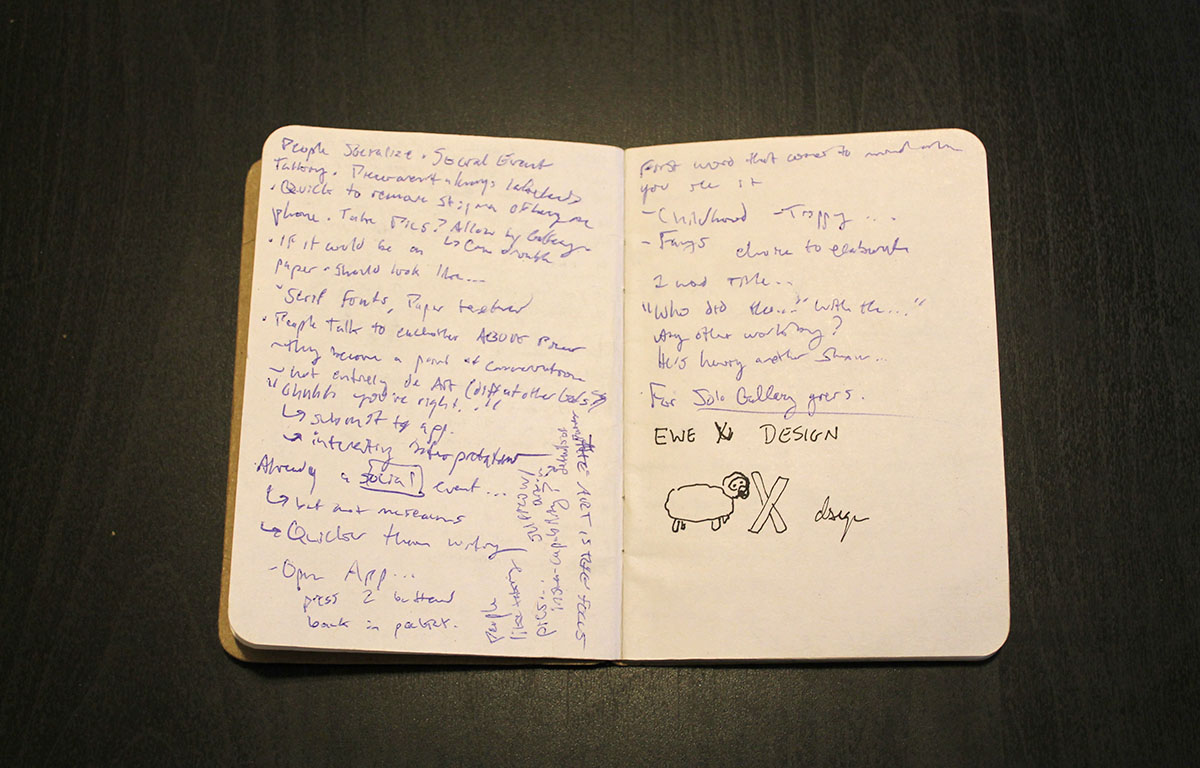 People Socialize. Social Event
Talking.
• Quick to remove stigma of being on
phone. Take Pics? Allow by Gallery
• If it would be on
paper • Should look like...
Serif Fonts, Paper textured
• People Talk to eachother ABOUT
~They become a point of conversation
~ not entirely de Art (diff at other
"Ohhhh you're right."
↳ submit to app.
↳ interesting interpretation
Already a social event...
↳ but not museums
↳ Quicker than writing
- Open App...
press 2 buttons
back in pocket.
People
like taking
pics...
insta-capability?
THE ART IS THE FOCUS
First word that comes to mind when
you see it
- Childhood - Trippy ...
- Fangs choice to elaborate
2 word Title...
"Who did the..." with the..."
Any other works by?
He's having another show...
For Solo Gallery goers.
EWE X DESIGN
X design